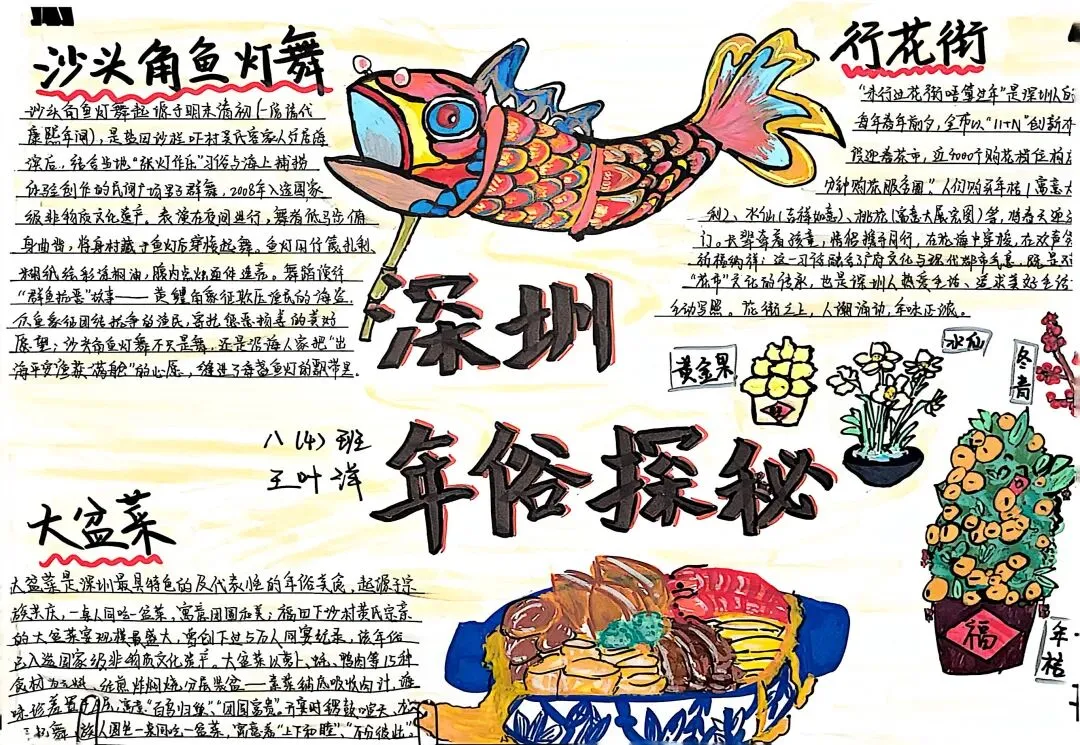 沙头角鱼灯舞
沙头角鱼灯舞起源于明末清初(一说清代
康熙年间)，是盐田沙栏吓村吴氏客家人分居海
滨后，结合当地“张灯作乐”习俗与海上捕捞
体验创作的民间广场男子群舞，2008年入选国家
级非物质文化遗产。表演在夜间进行，舞者低马步俯
身曲背，将身材藏于鱼灯后穿梭起舞。鱼灯用竹篾扎制
糊纸绘彩涂桐油，腹内点烛
“群鱼抗恶”故事——黄鱲角象征欺压渔民的海盗，
众鱼象征团结抗争的渔民，寄托惩恶扬善的美好
愿望；沙头角鱼灯舞不只是舞，还是沿海人家把“出
海平安渔获满舱”的心愿，缝进了每盏鱼灯的飘带里。
行花街
“未行过花街唔算过年”是深圳人的
每年春年前夕，全市以“11+N”创新
设迎春花市，近4000个购花摊位构成
分钟购花服务圈”。人们购买年桔(寓意大
利)、水仙(吉祥如意)、桃花(寓意大展宏图)等，将春天迎
门。长辈牵着孩童，情侣携手同行，在花海中穿梭，在欢声
祈福纳祥；这一习俗融合了广府文化与现代都市气息，既是对
“花市”文化的传承，也是深圳人热爱生活、追求美好生活
生动写照。花街之上，人潮涌动，年味正浓。
深圳
年俗探秘
黄金果
水仙
冬青
八(4)班
王叶洋
福
年桔
大盆菜
大盆菜是深圳最具特色的及代表性的年俗美食，起源于宗
族共庆，一桌人同吃一盆菜，寓意团圆和美；福田下沙村黄氏宗亲
的大盆菜宴规模最盛大，曾创下过5万人同宴纪录，该年俗
已入选国家级非物质文化遗产。大盆菜以萝卜、鸭肉等15种
食材为主料，经煎炸焖烧，分层装盆——素菜铺底吸收肉汁，
寓意“百鸟归巢”、“团圆富贵”。开宴时锣鼓喧天，
人围坐一桌同吃一盆菜，寓意着“上下和睦”、“不分彼此”